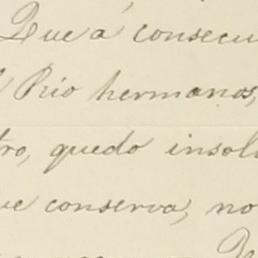 Que á consecu
l Rio hermanos,
tro, quedo insol
ve conserva, no
De